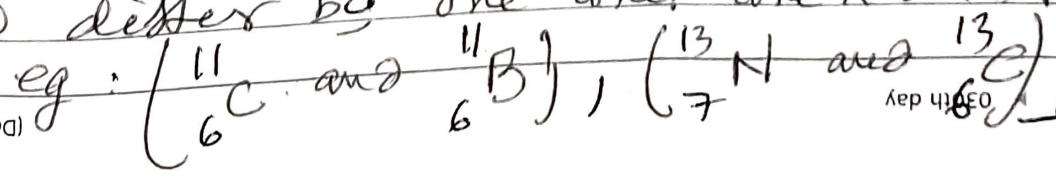 differ by one
eg : ( ¹¹₆C and ¹¹₆B ) , ( ¹³₇N and ¹³₆C )
030th day